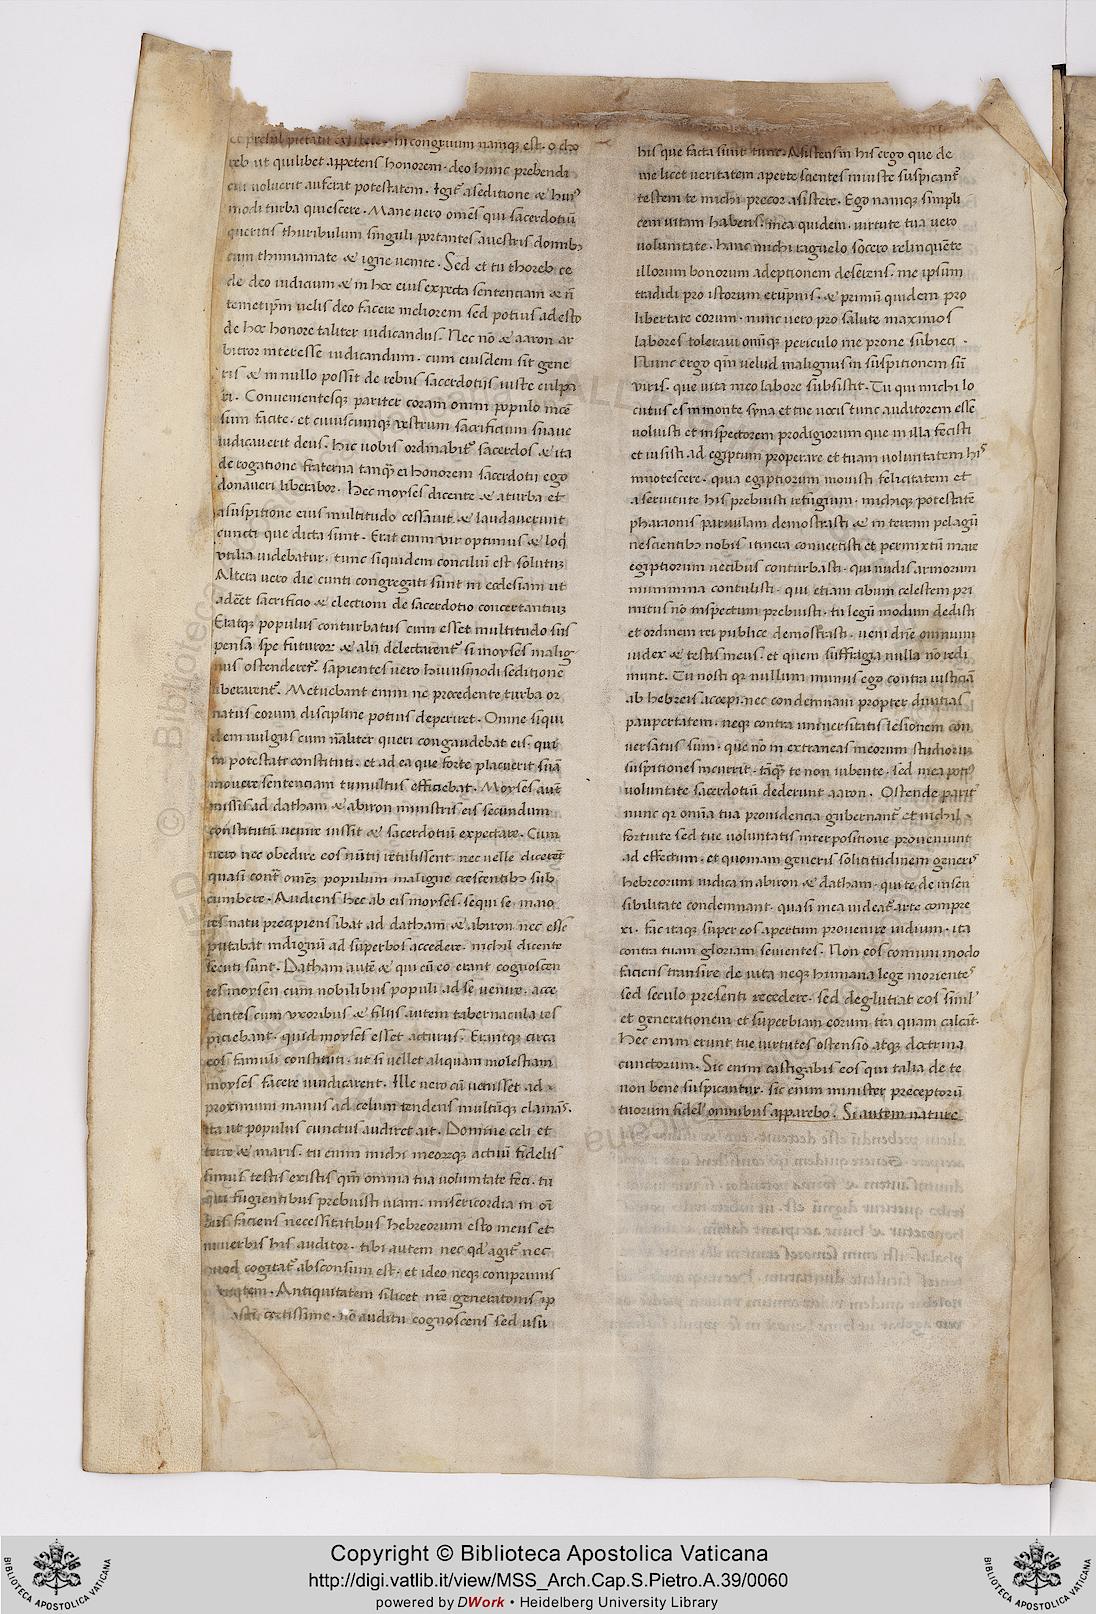 incongruum namq; est. o cho
reb ut quilibet appetens honorem. deo hunc prebendi
cui voluerit auferat potestatem. Igit᷑ aseditione & hui9
modi turba quiescere. Mane vero om̅es qui sacerdotiū
queritis thuribulum singuli portantes auestris domib;
cum thimiamate & igne venite. Sed et tu thoreb ce
de deo iudicium & in hoc eius expecta sententiam & n̅
temetip̅m velis deo facere meliorem sed potius adesto
de hoc honore taliter iudicandus. Nec nō & aaron ar
bitror interesse iudicandum. cum eiusdem sit gene
ris & in nullo possit de rebus sacerdotijs iuste culpa
ri. Convenientesq; pariter coram omni populo ince̅
sum facite. et cuiuscumq; vestrum sacrificium suave
iudicaverit deus. hic vobis ordinabit᷑ sacerdos & ita
derogatione fraterna tanq̅ ei honorem sacerdotii ego
donaveri liberabor. Hec moyses dicente & aturba et
asuspitione eius multitudo cessavit & laudaverunt
cuncti que dicta sunt. Erat enim vir optimus & loq̅
utilia videbatur. tunc siquidem concilium est solutum
Altera vero die cunti congregati sunt in ecclesiam ut
adeēt sacrificio & electioni de sacerdotio concertantium
Eratq; populus conturbatus cum esset multitudo sus
pensa spe futuror̅ & alij delectarent᷑ si moyses malig
nus ostenderet᷑. sapientes vero huiusmodi seditione
liberarent᷑. Metuebant enim ne procedente turba or
natus eorum discipline potius deperiret. Omne siqui
dem vulgus cum nāliter queri congaudebat eis. qui
in potestate constituti. et ad ea que forte placuerit suā
movere sententiam tumultus efficiebat. Moyses aut̅
missis ad datham & abiron ministris eis secundum
constitutū venire iussit & sacerdotiū expectare. Cum
vero nec obedire eos nūtij retulissent nec velle dicerēt
quasi cont᷑ om̅em populum maligne crescentib; sub
cumbere. Audiens hec ab eis moyses. sequi se maio
res natu precipiens ibat ad datham & abiron nec esse
putabat indignū ad superbos accedere. nichil dicente
secuti sunt. Datham autē & qui cū eo erant cognoscen
tes moysen cum nobilibus populi ad se venire. acce
dentes cum uxoribus & filijs autem tabernacula res
piciebant. quid moyses esset acturus. Erantq; circa
eos famuli constituti. ut si vellet aliquam molestiam
moyses facere vindicarent. Ille vero cū venisset ad
proximum manus ad celum tendens multūq; clamās.
ita ut populus cunctus audiret ait. Domine celi et
terre & maris. tu enim michi meorq; actuū fidelis
simus testis existis qm̅ omnia tua voluntate feci. tu
qui fugientibus prebuisti viam. misericordia in oī
bus faciens necessitatibus hebreorum esto meus et
inverbis his auditor. tibi autem nec qd̅ agit᷑ nec
quod cogitat᷑ absconsum est. et ideo neq; comprimis
Antiquitatem silicet nr̅e generationis ip
certissime. nō auditu cognoscens sed usu
his que facta sunt tunc. Asistens in his ergo que de
me licet veritatem aperte scientes iniuste suspicant᷑
testem te michi precor asistere. Ego namq; simpli
cem vitam habens. mea quidem. virtute tua vero
voluntate. hanc michi raguelo socero relinque̅te
illorum bonorum adeptionem deserens. me ipsum
tradidi pro istorum erūpnis. & primū quidem pro
libertate eorum. nunc vero pro salute maximos
labores toleravi omīq; periculo me prone subieci.
Nunc ergo qm̅ velud malignus in suspitionem sū
viris. que vita meo labore subsistit. Tu qui michi lo
cutus es in monte syna et tue vocis tunc auditorem esse
voluisti et inspectorem prodigiorum que in illa fecisti
et iusisti ad egiptum properare et tuam voluntatem his
innotescere. quia egiptiorum movisti felicitatem et
aservitute his prebuisti refugium. michiq; potestatē
pharaonis parvulam demostrasti & in terram pelagū
nescientib; nobis itinera convertisti et permixtū mare
egiptiorum necibus conturbasti. qui nudis armorum
munimina contulisti. qui etiam cibum celestem pri
mitus nō inspectum prebuisti. tu legū modum dedisti
et ordinem rei publice demostrasti. veni dn̅e omnium
iudex & testis meus. et quem suffragia nulla nō redi
munt. Tu nosti qr nullum munus ego contra iusticiā
ab hebreis accepi. nec condemnavi propter divitias
paupertatem. neq; contra universitatis lesionem con
versatus sum. que nō in extraneas meorum studiorum
suspitiones incurrit. tāq̅ te non iubente. sed mea poti9
voluntate sacerdotiū dederunt aaron. Ostende parit᷑
nunc qr omnia tua providencia gubernant᷑ et nichil
fortuite sed tue voluntatis interpositione proveniunt
ad effectum. et quoniam generis solicitudinem generis
hebreorum iudica in abiron & datham. qui te de insen
sibilitate condemnant. quasi mea videat᷑ arte compre
xi. fac itaq; super eos apertum provenire iudium. ita
contra tuam gloriam sevientes. Non eos comuni modo
faciens transire de vita neq; humana lege morientes
sed seculo presenti recedere. sed deglutiat eos siml'
et generationem et superbiam eorum tr̅a quam calcāt.
Hec enim erunt tue virtutes ostensio atq; doctrina
cunctorum. Sic enim castigabis eos qui talia de te
non bene suspicantur. sic enim minister preceptorū
tuorum fidel' omnibus apparebo. Si autem nature
Copyright © Biblioteca Apostolica Vaticana
http://digi.vatlib.it/view/MSS_Arch.Cap.S.Pietro.A.39/0060
powered by DWork • Heidelberg University Library